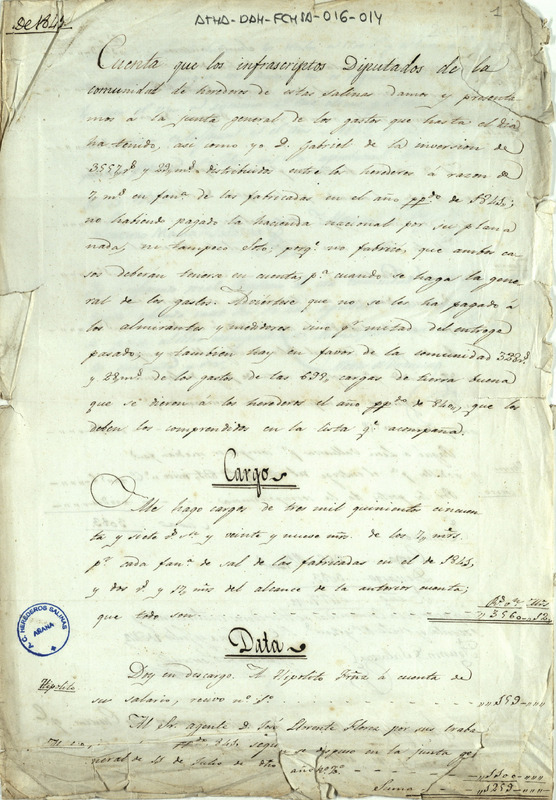 De 1843.
ATHA-DAH-FCHSA-016-014
1
Cuenta que los infrascriptos Diputados de la
comunidad de herederos de estas salinas damos y presenta
mos á la junta general de los gastos que hasta el dia
ha tenido, asi como yo D. Gabriel de la inversion de
3557,, r.s y 29,, m.s distribuidos entre los herederos á razon de
7,, m.s en fan.a de las fabricadas en el año pp.do de 1843;
no habiendo pagado la hacienda nacional por su plana
nada, ni tampoco Soto; porq.e no fabricó, que ambos ca
sos deberan tenerse en cuenta, p.a cuando se haga la gene
ral de los gastos. Adviertese que no se les ha pagado á
los almirantes y medidores sino p.r mitad del entrega
pasado; y tambien hay en favor de la comunidad 328 r.s
y 28,, m.s de los gastos de las 692,, cargas de tierra buena
que se dieron á los herederos el año pp.do de 840,, que los
deben los comprendidos en la lista q.e acompaña.
Cargo
Me hago cargo de tres mil quinientos cincuen
ta y siete r.s v.n y veinte y nueve mrs. de los 7,, mrs.
p.r cada fan.a de sal de las fabricadas en el de 1843,
y dos r.s y 17,, mrs del alcance de la anterior cuenta,
que todo son
R.s v.n Mrs
,, 3560 ,, 12
F. C. HEREDEROS SALINAS
AÑANA
Data
Doy en descargo. A Hipolito Frñz á cuenta de
Hipolito
su salario, recivo n.o 1.o
,, 159 - ,,,,
Al Sr. agente D. José Llorente Flores por sus traba
843, segun se dispuso en la junta ge
neral de 11 de Julio de dho año n.o 2.o
,, 1100 - ,,,,
Suma
,, 1259 - ,,,,